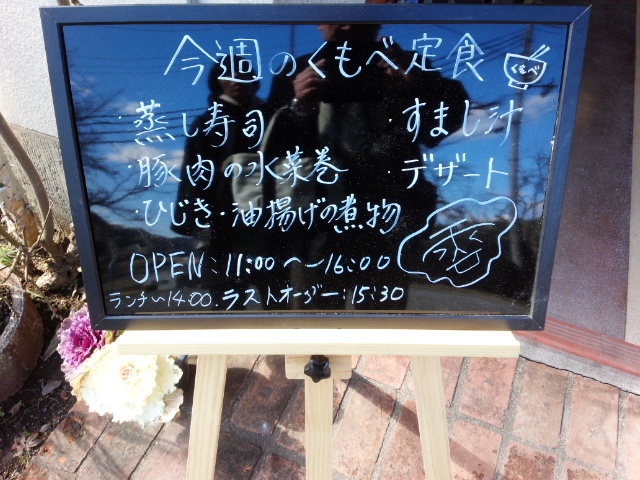 今週のくもべ定食
くもべ
・蒸し寿司
・すまし汁
・豚肉の水菜巻
・デザート
・ひじき・油揚げの煮物
OPEN:11:00〜16:00
ランチ〜14:00.ラストオーダー:15:30